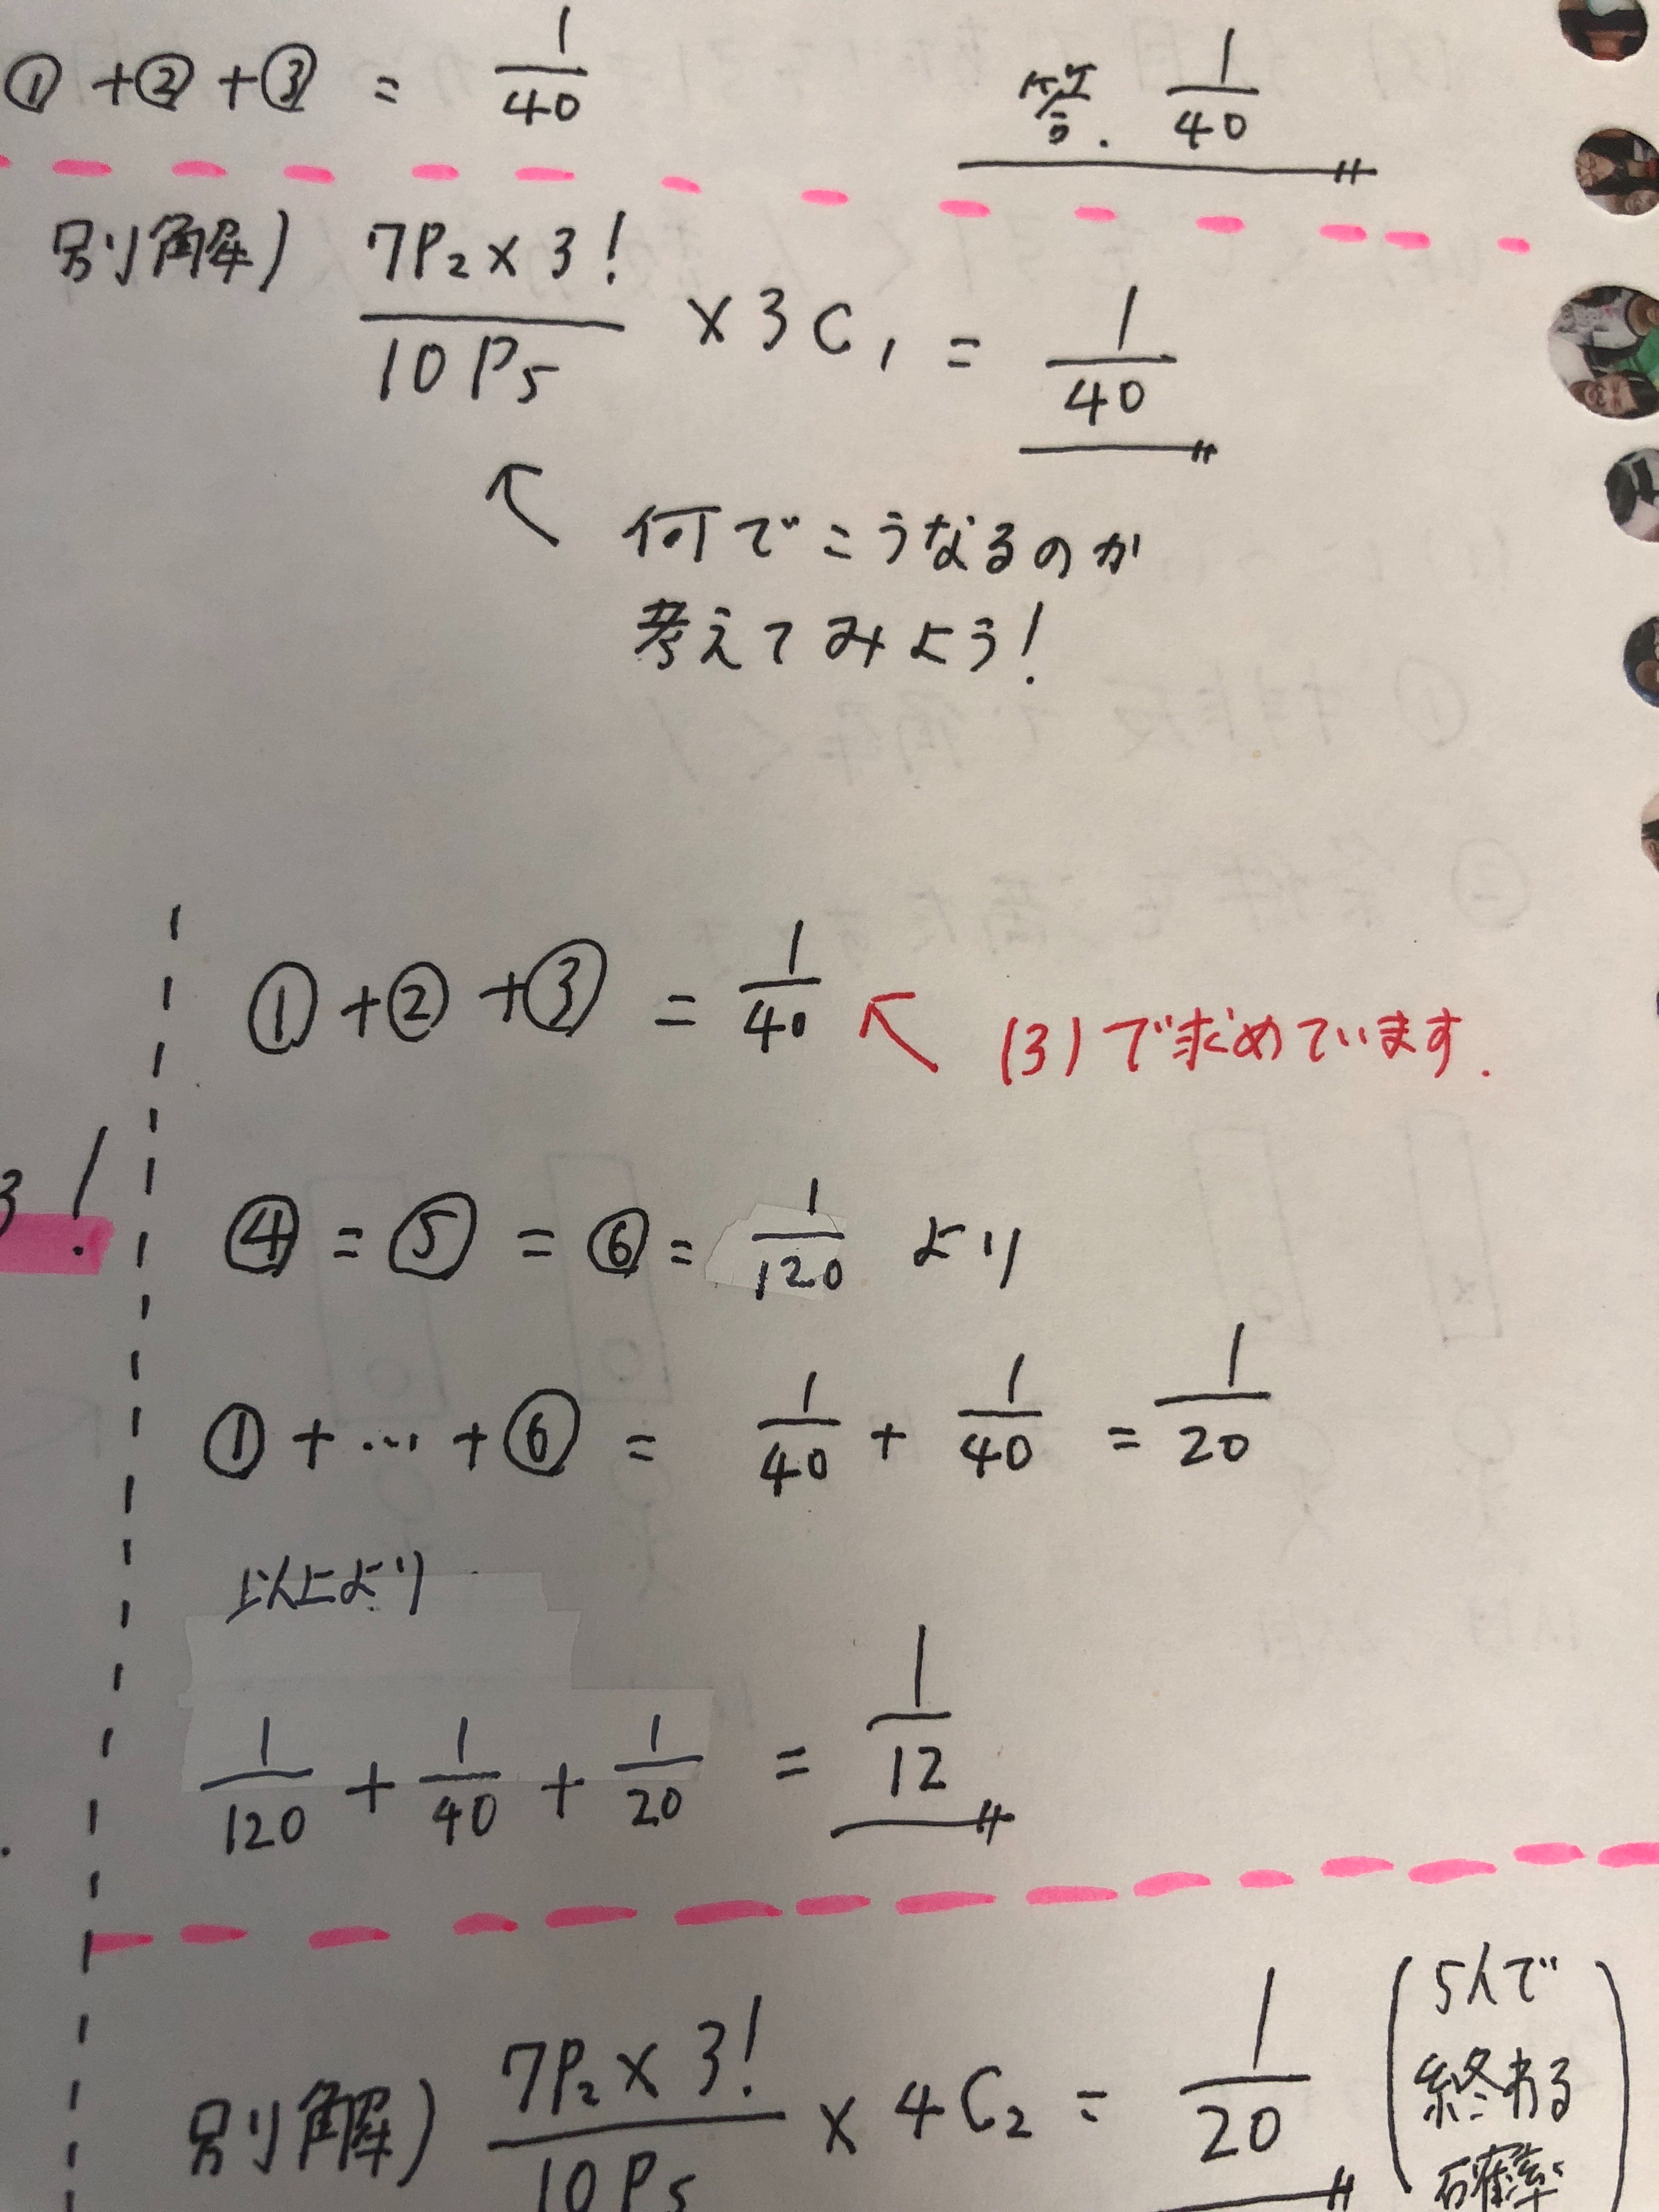 ① + ② + ③ = 1/40
答. 1/40
別解) 7P₂×3!/10P₅ × 3C₁ = 1/40
何でこうなるのか
考えてみよう!
① + ② + ③ = 1/40 (3)で求めています.
3!
④ = ⑤ = ⑥ = 1/120 より
① + … + ⑥ = 1/40 + 1/40 = 1/20
以上より
1/120 + 1/40 + 1/20 = 1/12
別解) 7P₂×3!/10P₅ × 4C₂ = 1/20 (5人で
終わる
確率)